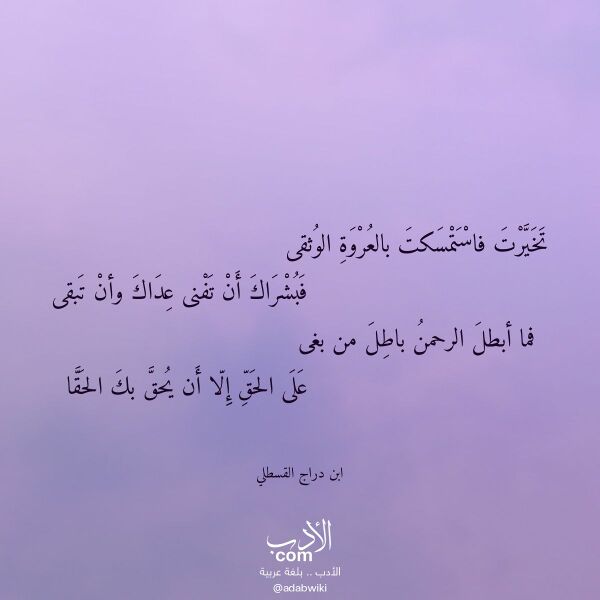 تَخَيَّرْتَ فاسْتَمْسَكتَ بالعُرْوَةِ الوُثقى
فَبُشْرَاكَ أَنْ تَفْنى عِدَاكَ وأنْ تَبقى
فما أبطلَ الرحمنُ باطِلَ من بغى
عَلَى الحَقِّ إِلّا أَن يُحقَّ بكَ الحَقَّا
ابن دراج القسطلي
الأدب
.com
الأدب .. بلغة عربية
@adabwiki